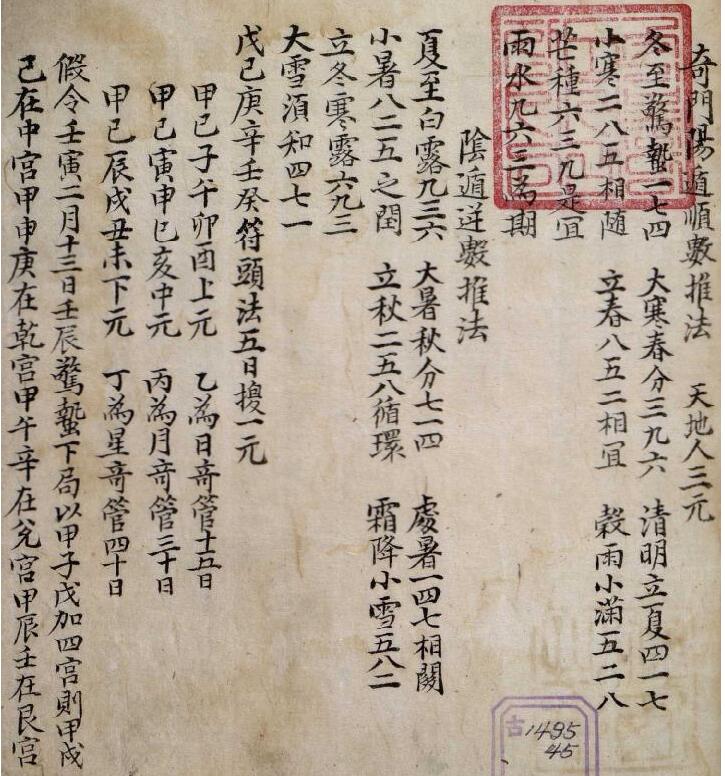 奇門陽遁順數推法 天地人三元
冬至驚蟄一七四 大寒春分三九六 清明立夏四一七
小寒二八五相随 立春八五二相冝 穀雨小滿五二八
芒種六三九是冝
雨水九六三為期
陰遁逆數推法
夏至白露九三六 大暑秋分七一四 處暑一四七相關
小暑八二五之間 立秋二五八循環 霜降小雪五八二
立冬寒露六九三
大雪須知四七一
戊己庚辛壬癸符頭法五日換一元
甲己子午卯酉上元 乙為日竒管十五日
甲己寅申巳亥中元 丙為月竒管三十日
甲己辰戌丑未下元 丁為星竒管四十日
假令壬寅二月十三日壬辰驚蟄下局以甲子戊加四宮則甲戌
己在中宮甲申庚在乾宮甲午辛在兌宮甲辰壬在艮宮
古1495
45